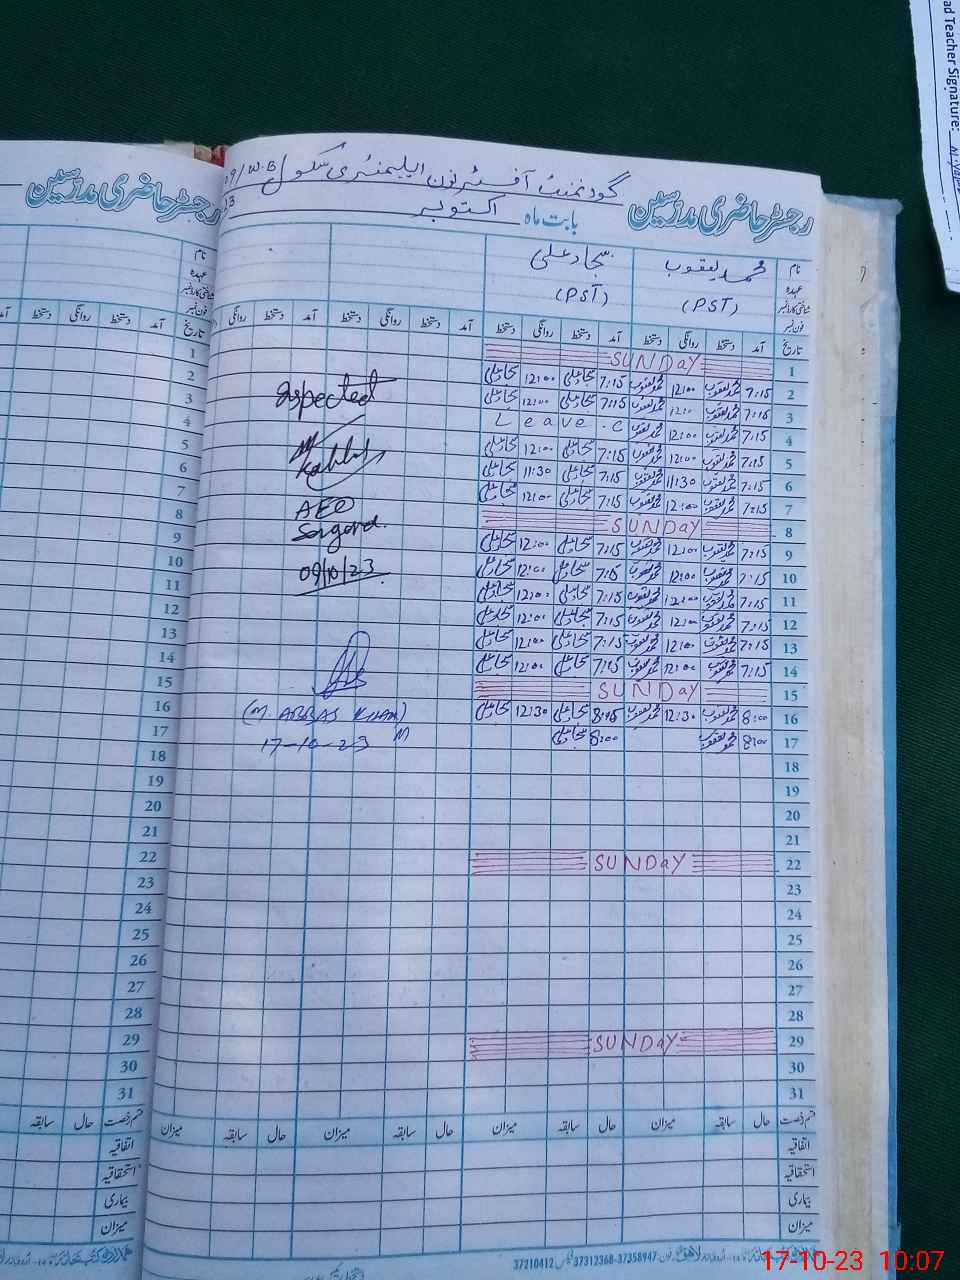 ad Teacher Signature:
گورنمنٹ آفٹر نون ایلیمنٹری سکول 9/W.B
رجسٹر حاضری مدرسین بابت ماہ اکتوبر
رجسٹر حاضری مدرسین
نام محمد یعقوب سجاد علی
عہدہ (PST) (PST)
فون نمبر
تاریخ آمد دستخط روانگی دستخط آمد دستخط روانگی دستخط آمد دستخط روانگی دستخط آمد دستخط روانگی
1 SUNDAY
2 7:15 محمد یعقوب 12:00 محمد یعقوب 7:15 سجاد علی 12:00 سجاد علی
3 7:15 محمد یعقوب محمد یعقوب 7:15 سجاد علی 12:00 سجاد علی
4 7:15 محمد یعقوب 12:00 محمد یعقوب Leave .C
5 7:15 محمد یعقوب 12:00 محمد یعقوب 7:15 سجاد علی 12:00 سجاد علی
6 7:15 محمد یعقوب 11:30 محمد یعقوب 7:15 سجاد علی 11:30 سجاد علی
7 7:15 محمد یعقوب 12:00 محمد یعقوب 7:15 سجاد علی 12:00 سجاد علی
8 SUNDAY
9 7:15 محمد یعقوب 12:00 محمد یعقوب 7:15 سجاد علی 12:00 سجاد علی
10 7:15 محمد یعقوب 12:00 محمد یعقوب 7:15 سجاد علی 12:00 سجاد علی
11 7:15 محمد یعقوب 12:00 محمد یعقوب 7:15 سجاد علی 12:00 سجاد علی
12 7:15 محمد یعقوب 12:00 محمد یعقوب 7:15 سجاد علی 12:00 سجاد علی
13 7:15 محمد یعقوب 12:00 محمد یعقوب 7:15 سجاد علی 12:00 سجاد علی
14 7:15 محمد یعقوب 12:00 محمد یعقوب 7:15 سجاد علی 12:00 سجاد علی
15 SUNDAY
16 8:00 محمد یعقوب 12:30 محمد یعقوب سجاد علی 12:30 سجاد علی
17 8:00 محمد یعقوب 8:00 سجاد علی
18
19
20
21
22 SUNDAY
23
24
25
26
27
28
29 SUNDAY
30
31
قسم رخصت حال سابقہ میزان حال سابقہ میزان حال سابقہ میزان حال سابقہ میزان
اتفاقیہ
استحقاقیہ
بیماری
میزان
Inspected
AEO
09/10/23
(M. ABBAS KHAN)
17-10-23
آمد دستخط روانگی دستخط آمد
1
2
3
4
5
6
7
8
9
10
11
12
13
14
15
16
17
18
19
20
21
22
23
24
25
26
27
28
29
30
31
قسم رخصت حال سابقہ
اتفاقیہ
استحقاقیہ
بیماری
میزان
37210412 فیکس 37313368-37358947
17-10-23 10:07